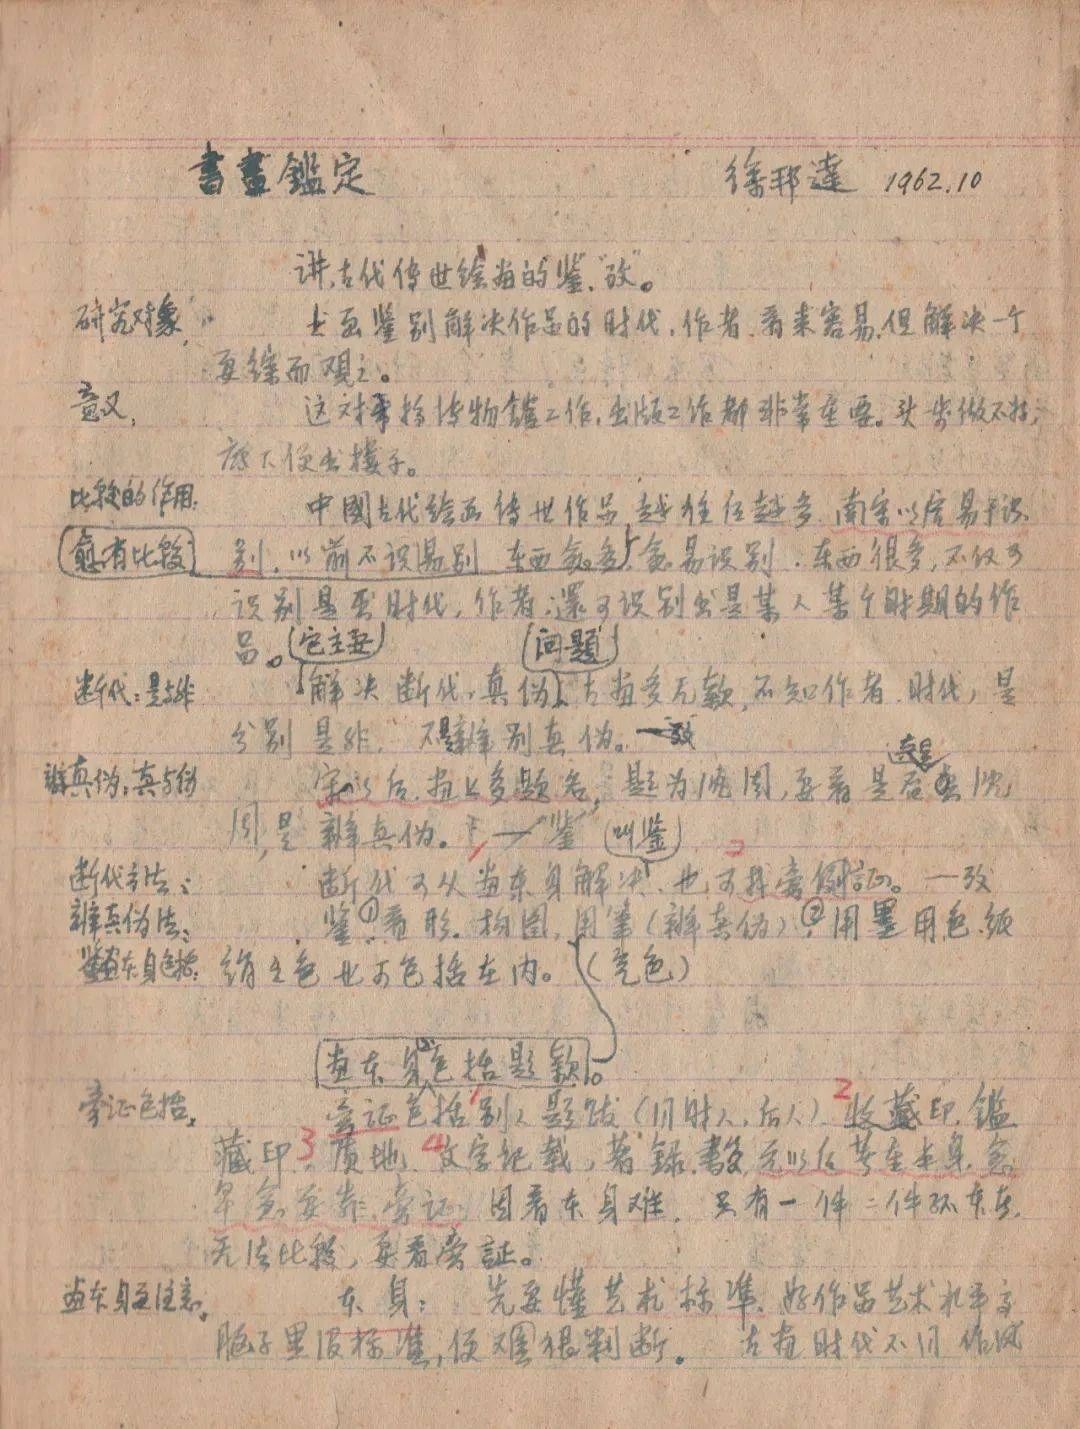 書畫鑑定 徐邦達 1962.10
讲古代传世绘画的“鉴”“攷”。
研究对象 书画鉴别解决作品的时代,作者,看来容易,但解决一个
要综而观之。
意义, 这对博物馆工作,出版工作都非常重要。头步做不好,
底下便出摟子。
比较的作用: 中國古代绘画传世作品,越往后越多,南宋以后易于识
愈有比较 别,以前不识易别 东西愈多,愈易识别。东西很多,不仅可
识别是否时代,作者,還可识别出是某人某个时期的作
品。 它主要 问題
断代:是与非 解决断代,真伪,古画多无款,不知作者,时代,是
分别是非,不是辨别真伪。一攷
辨真伪:真与伪 宋以后画上多题名,题为沈周,要看是否 真是 沈
周,是辨真伪。 — “鉴” 叫鉴
断代方法: 断代可从画本身解决,也可找旁侧証。一攷
辨真伪法: 鉴①看形,构图,用筆(辨真伪)②用墨用色,纸
鉴画本身包括: 绢之色也可包括在内。(气色)
画本身包括題款。
旁证包括, 旁证包括1别人题跋(同时人,后人)2收藏印,鑑
藏印,3质地,4文字记载,著録書多,元以后 本身,愈
早愈要靠旁证,因看本身难,只有一件二件孤本在,
无法比較,要看旁証。
画本身要注意。 本身: 先要懂艺术标準,好作品艺术水平高
脑子里没标準,便很难判断。 古画时代不同作风